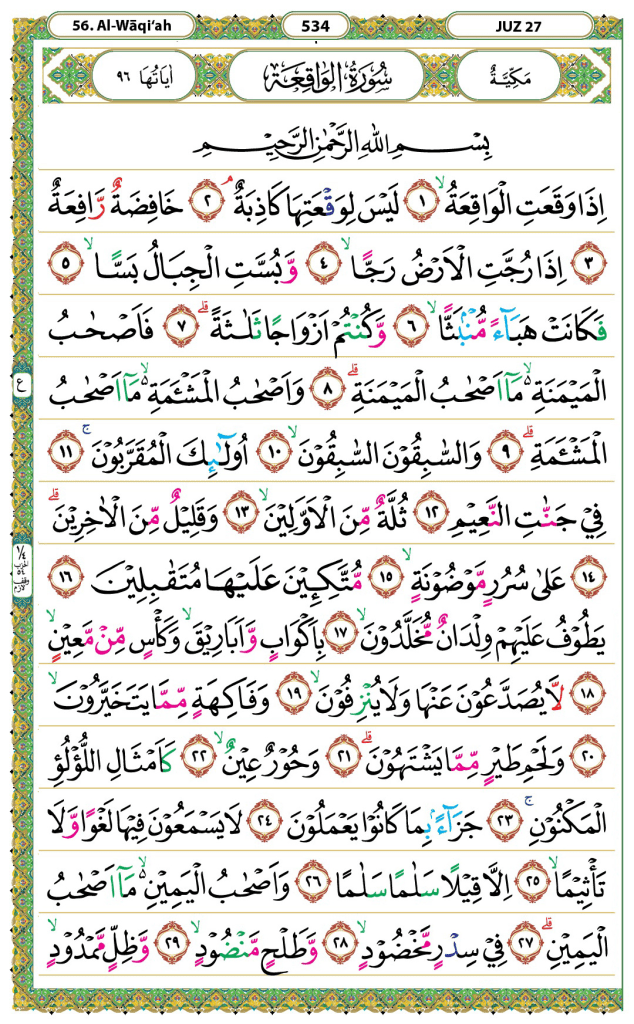 56. Al-Wāqi‘ah
534
JUZ 27
مَكِّيَّةٌ
سُوْرَةُ الْوَاقِعَةِ
اٰيَاتُهَا ٩٦
بِسْمِ اللهِ الرَّحْمٰنِ الرَّحِيْمِ
اِذَا وَقَعَتِ الْوَاقِعَةُۙ ١ لَيْسَ لِوَقْعَتِهَا كَاذِبَةٌۘ ٢ خَافِضَةٌ رَّافِعَةٌ
٣ اِذَا رُجَّتِ الْاَرْضُ رَجًّاۙ ٤ وَّبُسَّتِ الْجِبَالُ بَسًّاۙ ٥
فَكَانَتْ هَبَاۤءً مُّنْۢبَثًّاۙ ٦ وَّكُنْتُمْ اَزْوَاجًا ثَلٰثَةًۗ ٧ فَاَصْحٰبُ
الْمَيْمَنَةِ ەۙ مَآ اَصْحٰبُ الْمَيْمَنَةِۗ ٨ وَاَصْحٰبُ الْمَشْـَٔمَةِ ەۙ مَآ اَصْحٰبُ
الْمَشْـَٔمَةِۗ ٩ وَالسّٰبِقُوْنَ السّٰبِقُوْنَۙ ١٠ اُولٰۤىِٕكَ الْمُقَرَّبُوْنَۚ ١١
فِيْ جَنّٰتِ النَّعِيْمِ ١٢ ثُلَّةٌ مِّنَ الْاَوَّلِيْنَۙ ١٣ وَقَلِيْلٌ مِّنَ الْاٰخِرِيْنَۗ
١٤ عَلٰى سُرُرٍ مَّوْضُوْنَةٍۙ ١٥ مُّتَّكِـِٕيْنَ عَلَيْهَا مُتَقٰبِلِيْنَ ١٦
يَطُوْفُ عَلَيْهِمْ وِلْدَانٌ مُّخَلَّدُوْنَۙ ١٧ بِاَكْوَابٍ وَّاَبَارِيْقَۙ وَكَأْسٍ مِّنْ مَّعِيْنٍۙ
١٨ لَّا يُصَدَّعُوْنَ عَنْهَا وَلَا يُنْزِفُوْنَۙ ١٩ وَفَاكِهَةٍ مِّمَّا يَتَخَيَّرُوْنَۙ
٢٠ وَلَحْمِ طَيْرٍ مِّمَّا يَشْتَهُوْنَۗ ٢١ وَحُوْرٌ عِيْنٌۙ ٢٢ كَاَمْثَالِ اللُّؤْلُؤِ
الْمَكْنُوْنِۚ ٢٣ جَزَاۤءًۢ بِمَا كَانُوْا يَعْمَلُوْنَ ٢٤ لَا يَسْمَعُوْنَ فِيْهَا لَغْوًا وَّلَا
تَأْثِيْمًاۙ ٢٥ اِلَّا قِيْلًا سَلٰمًا سَلٰمًا ٢٦ وَاَصْحٰبُ الْيَمِيْنِ ەۙ مَآ اَصْحٰبُ
الْيَمِيْنِۗ ٢٧ فِيْ سِدْرٍ مَّخْضُوْدٍۙ ٢٨ وَّطَلْحٍ مَّنْضُوْدٍۙ ٢٩ وَّظِلٍّ مَّمْدُوْدٍۙ
ع